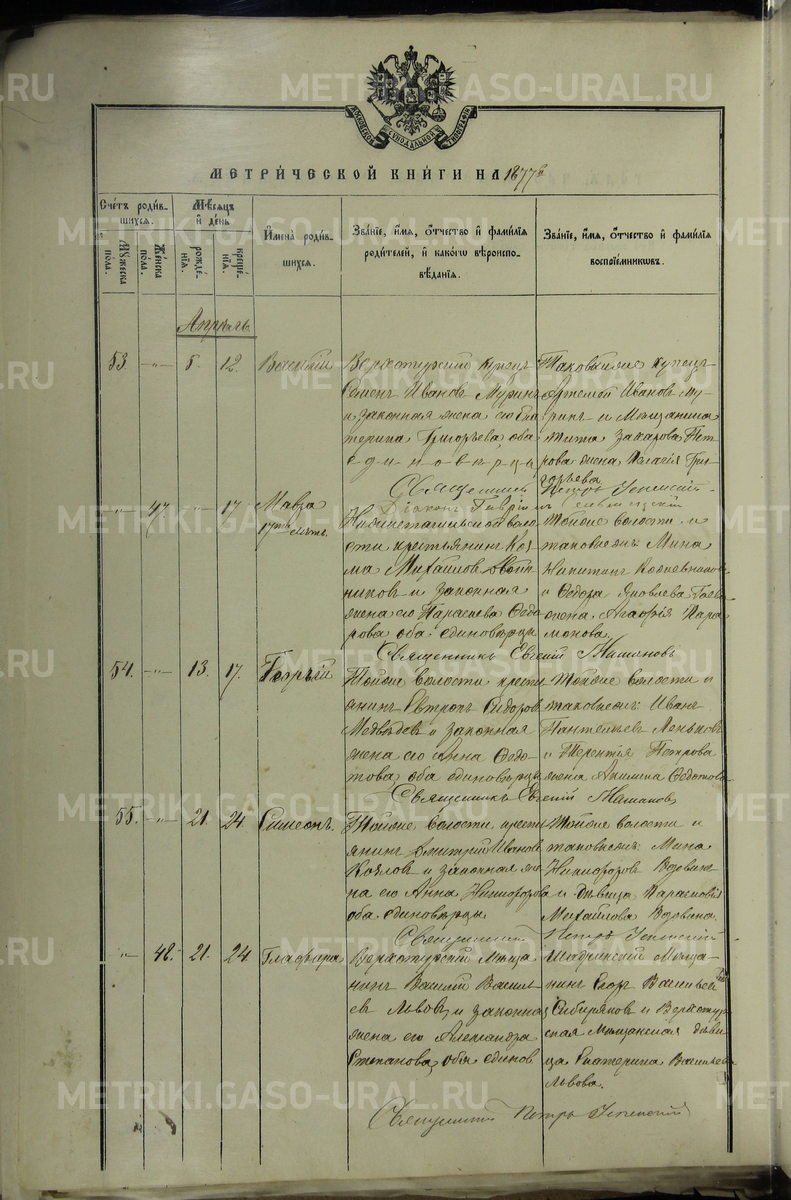 МОСКОВСКОЙ СѴНОДАЛЬНОЙ ТИПОГРАФІИ
МЕТРИ́ЧЕСКОЙ КНИ́ГИ НА 1877й
Сче́тъ роди́в-
шихся.
Му́жеска
по́ла.
Же́нска
по́ла.
Мѣ́сяцъ
и҆ де́нь
рожде́-
нїѧ.
креще́-
нїѧ.
И҆мена̀ роди́в-
шихся.
Зва́нїе, и҆́мѧ, ѻ҆́тчество и҆ фами́лїѧ
роди́телей, и҆ како́гѡ вѣроиспо-
вѣ́данїѧ.
Зва́нїе, и҆́мѧ, ѻ҆́тчество и҆ фами́лїѧ
воспрїе́мникѡвъ.
Апрѣль
53. -„- 5. 12.
Верхотурскій купецъ
Семенъ Ивановъ Муринъ
и законная жена его Ека
терина Григорьева, оба
единоверцы
Таковыяже купецъ
Артемій Ивановъ Му-
ринъ и Мѣщанина
Тита Захарова Пет
рова жена Пелагія Гри-
горьева.
Священникъ Петръ Успенскій
Діаконъ Гавріилъ
„ 47. „ 17
Мавра
17ти лѣтъ.
Нижнетагильской воло
сти крестьянинъ Коз
ма Михайловъ
никовъ и законная
жена его Параскева Ѳедо
рова оба единоверцы
Тойже волости и
таковыежъ: Мина
Никитинъ Кожевниковъ
и Ѳедора Яковлева
жена Агафія Пара
монова.
Священникъ Евгеній
54. -„- 13. 17.
Георгій
Тойже волости крестья
янинъ Евтропъ Сидоровъ
Медвѣдевъ и законная
жена его Анна Ѳедо-
това, оба единоверцы
Тойже волости и
таковыежъ: Иванъ
Пантелѣевъ Леньковъ
и Терентія Петрова
жена Акилина Ѳедотова
Священникъ Евгеній
55. -„- 21. 24.
Симеонъ.
Тойже волости кресть
янинъ Дмитрій Ивановъ
Козловъ и законная же
на его Анна Никифорова
оба единоверцы.
Тойже волости и
таковыежъ: Мина
Никифоровъ Вдовинъ
и дѣвица Параскевія
Михайлова Вдовина.
Священникъ Петръ Успенскій
„ 48. 21. 24
Глафира
Верхотурскій Мѣща
нинъ Василій Василь
евъ Львовъ и законная
жена его Александра
Степанова, оба единов
Шадринскій Мѣща-
нинъ Егоръ Васильевъ
Сибиряковъ и Верхотур
ская Мѣщанская дѣви
ца Екатерина Васильева
Львова.
Священникъ Петръ Успенскій
METRIKI.GASO-URAL.RU